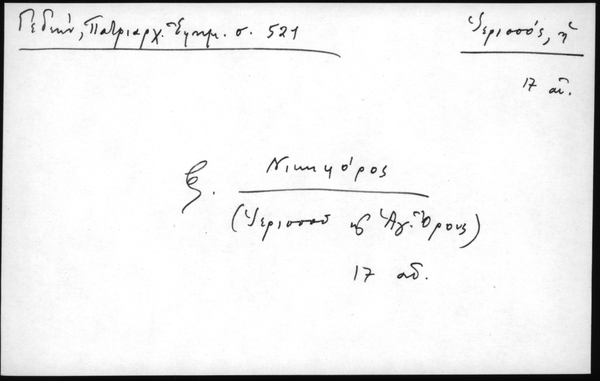 Γεδεών, Πατριαρχ. Ἐφημ. σ. 521
Ἱερισσός, ἡ
17 αἰ.
Νικηφόρος
(Ἱερισσοῦ καὶ Ἁγ. Ὄρους)
17 αἰ.